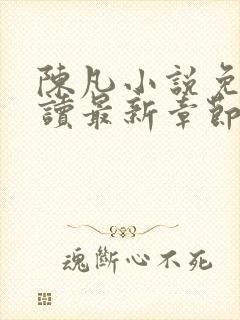 陳凡小說免
讀最新章節
魂斷心不死